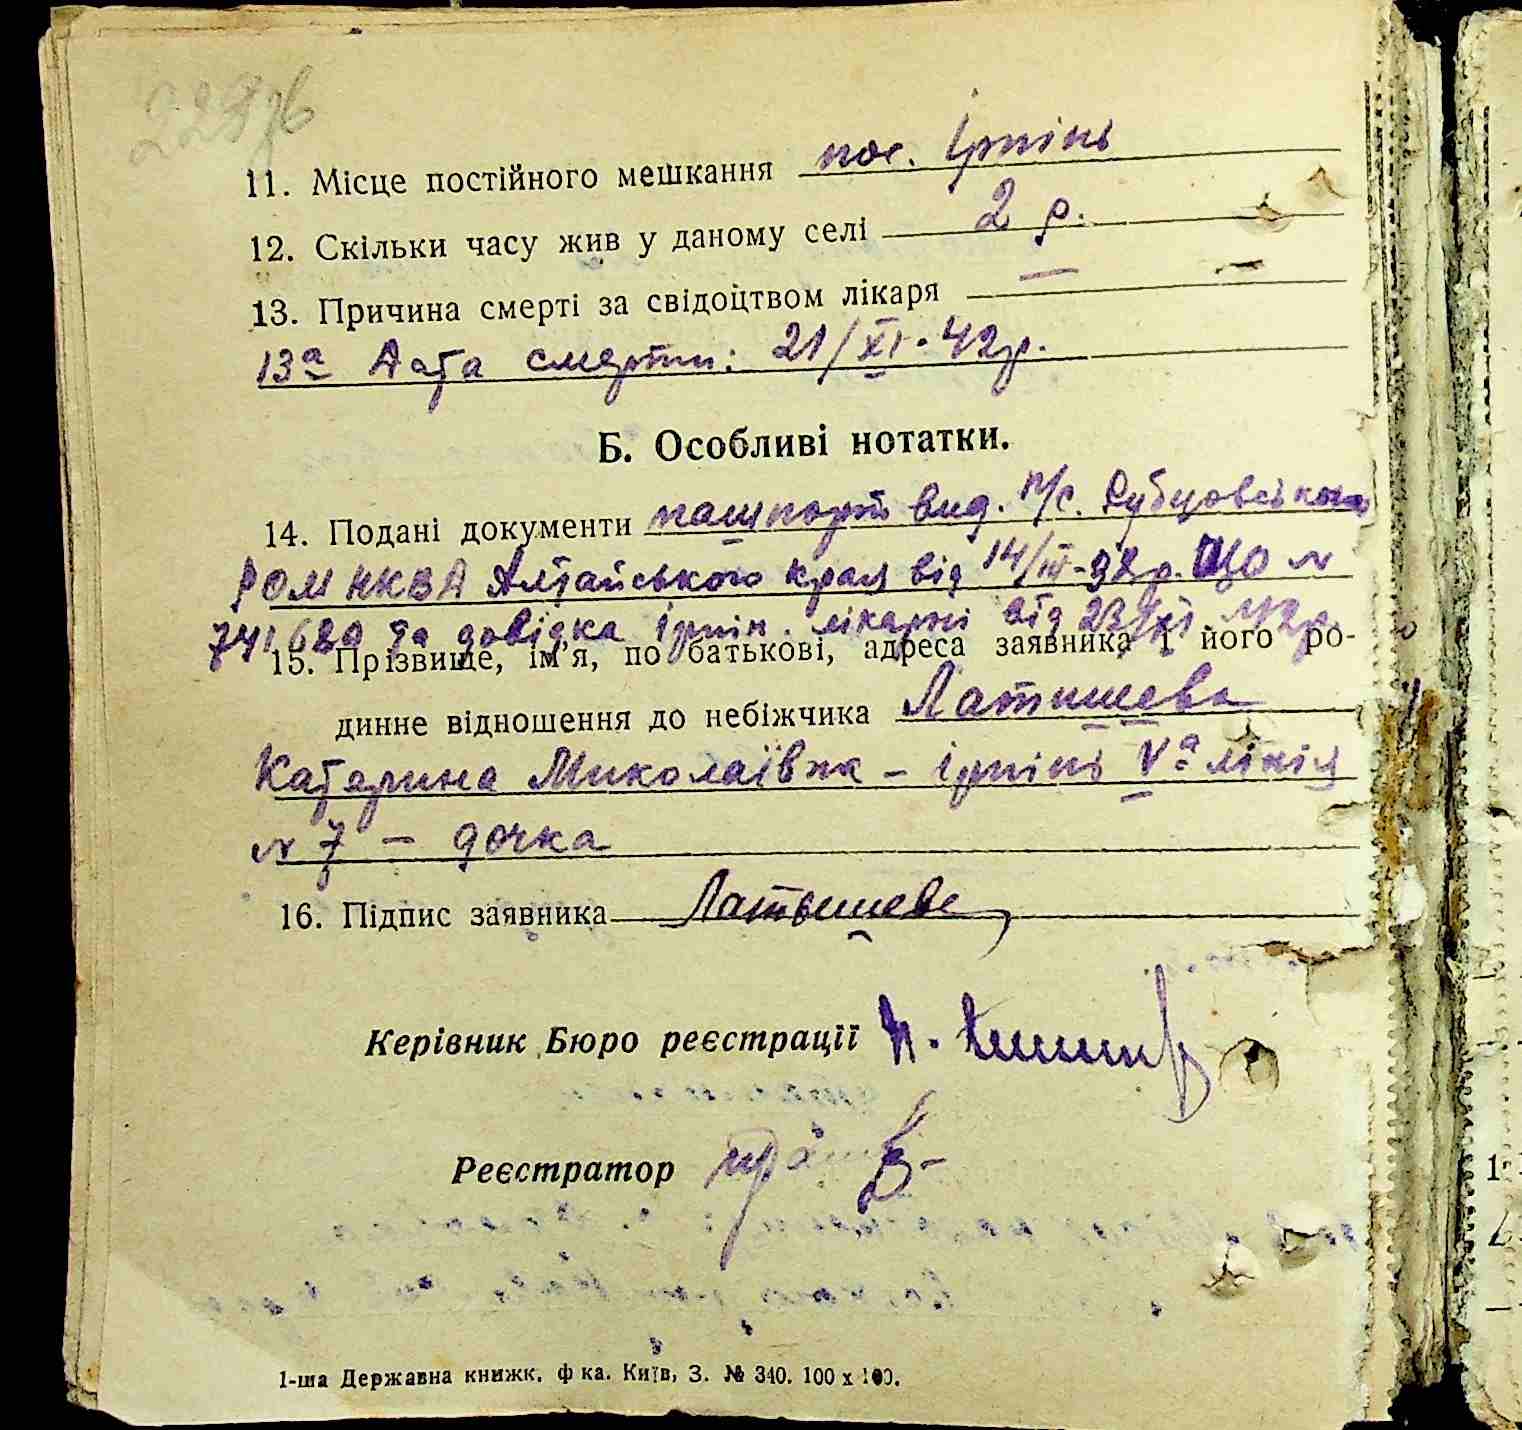 11. Місце постійного мешкання пос. Ірпінь
12. Скільки часу жив у даному селі 2 р.
13. Причина смерті за свідоцтвом лікаря —
13а Дата смерти: 21/XI-42р.
Б. Особливі нотатки.
14. Подані документи пашпорт вид. п/с. Рубцовського
РОМ НКВД Алтайського края від 14/III-38р. ЦО №
741680 та довідка Ірпін. лікарні від 23/XI 42р.
15. Прізвище, ім'я, по батькові, адреса заявника і його ро-
динне відношення до небіжчика Латишева
Катерина Миколаївна – Ірпінь Vа лінія
№ 7 – дочка
16. Підпис заявника Латышева
Керівник Бюро реєстрації
Реєстратор
1-ша Державна книжк. ф-ка. Київ, З. № 340. 100 x 100.